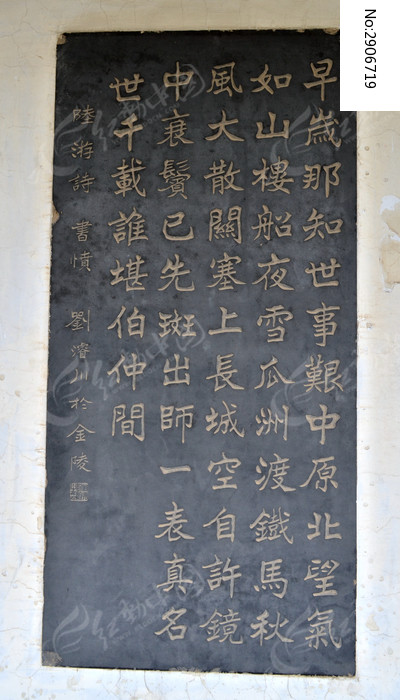 早歲那知世事艱中原北望氣
如山樓船夜雪瓜洲渡鐵馬秋
風大散關塞上長城空自許鏡
中衰鬢已先斑出師一表真名
世千載誰堪伯仲間
陸游詩 書憤 劉濬川於金陵
No:2906719